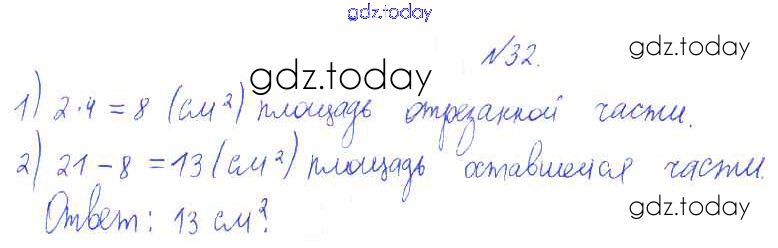 gdz.today
№32.
gdz.today
gdz.today
1) 2·4 = 8 (см²) площадь отрезанной части.
2) 21 - 8 = 13 (см²) площадь оставшейся части.
Ответ: 13 см².
gdz.today